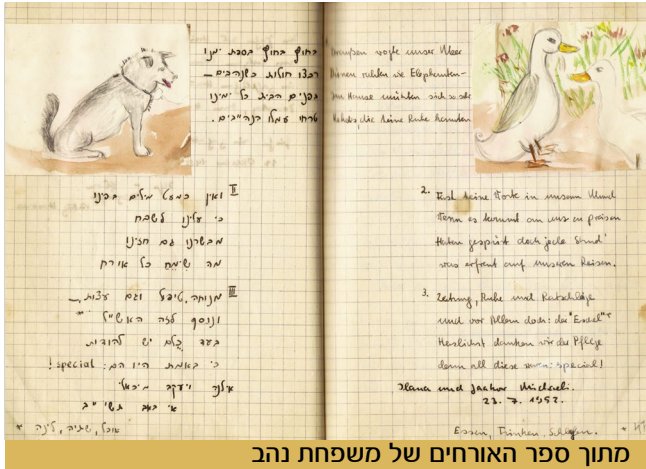 בחוץ בחוף בסכת ימנו
רבצו חולות כשנהבים –
בפנים הבית כל ימינו
טרחו עמלו הנהבים.
II ואין כמעט מילים בפינו
כי עלינו לשבח
מבשרנו גם חזינו
מה שימח כל אורח
III מנוחה, טיפול וגם עצות,
ונוסף לזה האש"ל *
בעד כלם יש להודות
כי באמת היו הם: special!
אלנה ויעקב מיכאלי
א' באב תשי"ב
* אוכל, שתיה, לינה
Draussen wogte unser Meer
Dünen ruhten wie Elephanten–
Im Hause mühten sich so sehr
Nehabs, die keine Ruhe kannten
2. Fast keine Worte in unserm Mund
Denn es kommt an uns zu preisen
Haben gespürt doch jede Stund'
was erfreut auf unseren Reisen.
3. Ruhe und Ratschläge
und vor Allem doch: der "Eschel" *
Herzlichst danken wir der Pflege
denn all diese waren: special!
Ilana und Jaakov Michaeli.
23. 7. 1952.
Essen, Trinken, Schlafen. *
מתוך ספר האורחים של משפחת נהב